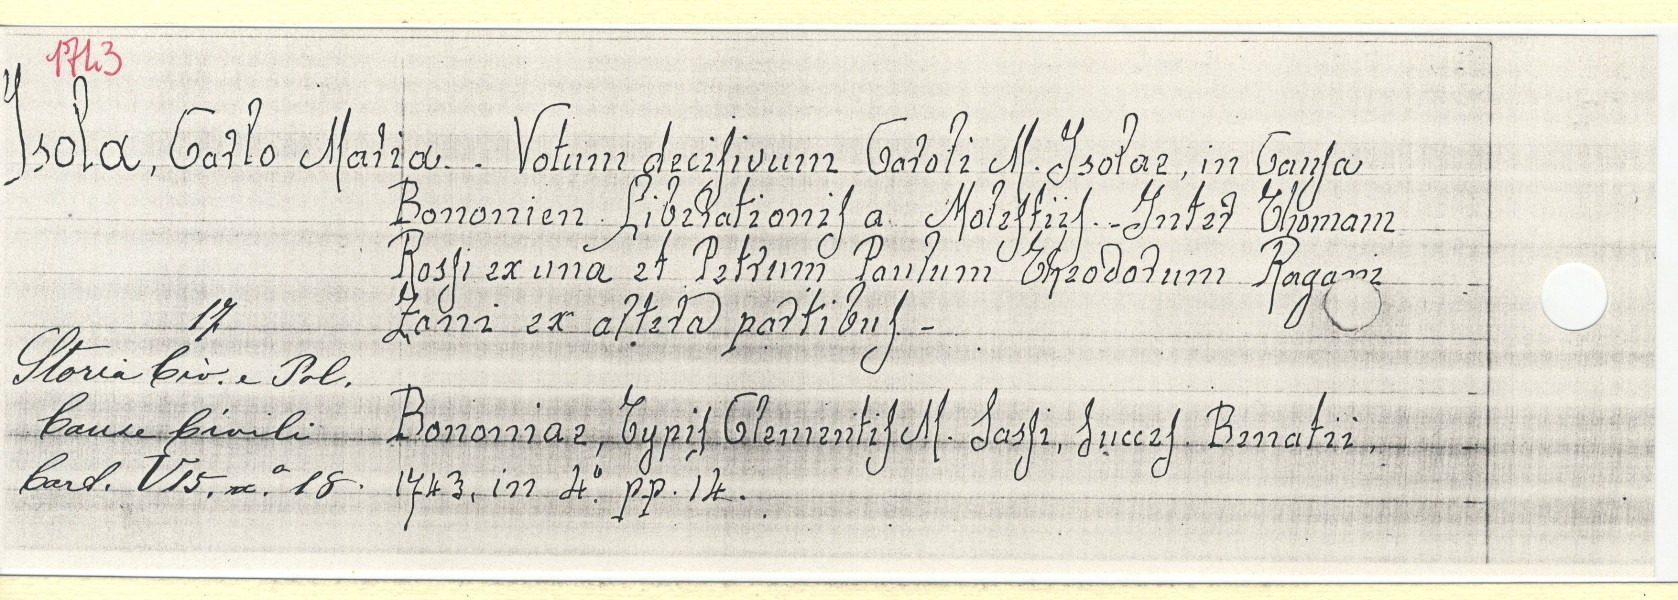 1743
Isola, Carlo Maria. - Votum decisivum Caroli M. Isolae, in Causa
Bononien. Liberationis a Molestiis. - Inter Thomam
Rossi ex una et Petrum Paulum Theodorum Ragani
Zani ex altera partibus -
17
Storia Civ. e Pol.
Cause Civili
Cart. V15. n.º 18.
Bononiae, Typis Clementis M. Sassi, Succes. Benatii,
1743, in 4º pp. 14.